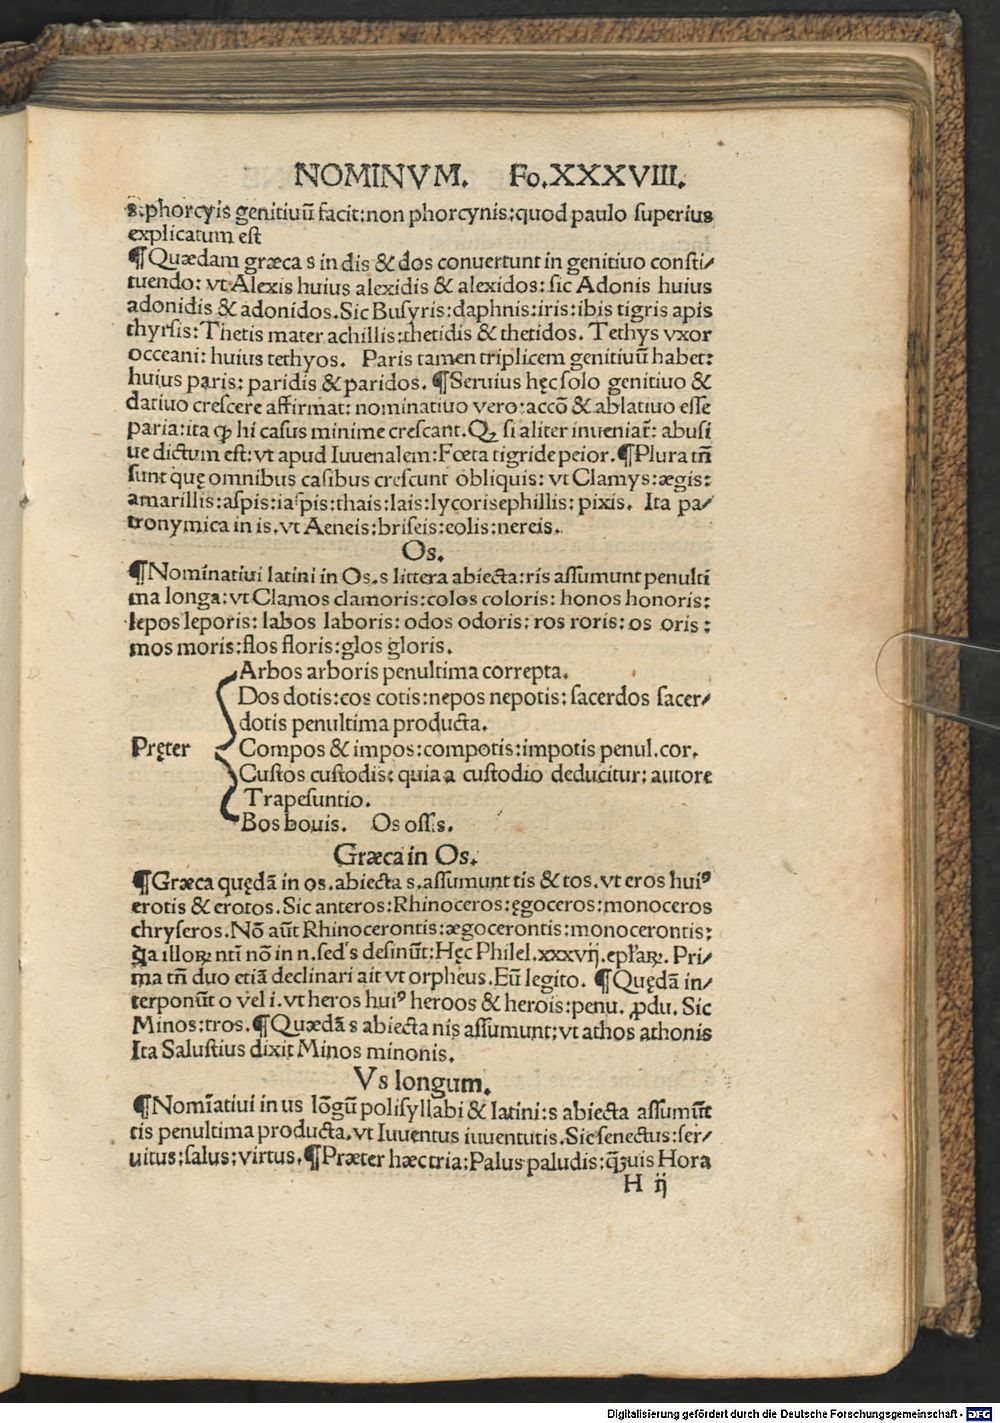 NOMINVM. Fo.XXXVIII.
s.phorcyis genitiuū facit:non phorcynis:quod paulo ſuperius
explicatum eſt
¶Quædam græca s in dis & dos conuertunt in genitiuo conſti/
tuendo: vt Alexis huius alexidis & alexidos: ſic Adonis huius
adonidis & adonidos.Sic Buſyris:daphnis:iris:ibis tigris apis
thyrſis:Thetis mater achillis:thetidis & thetidos. Tethys vxor
occeani: huius tethyos. Paris tamen triplicem genitiuū habet:
huius paris: paridis & paridos. ¶Seruius hęc ſolo genitiuo &
datiuo creſcere affirmat: nominatiuo vero:accō & ablatiuo eſſe
paria:ita ꝙ hi caſus minime creſcant.Qꝫ ſi aliter inueniat̄: abuſi
ue dictum eſt: vt apud Iuuenalem:Fœta tigride peior.¶Plura tñ
ſunt quę omnibus caſibus creſcunt obliquis: vt Clamys: ægis:
amarillis:aſpis:iaſpis:thais:lais:lycorisephillis: pixis. Ita pa/
tronymica in is.vt Aeneis:briſeis:eolis:nereis.
Os.
¶Nominatiui latini in Os.s littera abiecta:ris aſſumunt penulti
ma longa: vt Clamos clamoris:colos coloris: honos honoris:
lepos leporis: labos laboris: odos odoris: ros roris: os oris:
mos moris:flos floris:glos gloris.
Arbos arboris penultima correpta.
Dos dotis:cos cotis:nepos nepotis: ſacerdos ſacer/
dotis penultima producta.
Pręter Compos & impos:compotis:impotis penul.cor.
Cuſtos cuſtodis: quia a cuſtodio deducitur: autore
Trapeſuntio.
Bos bouis. Os oſſis.
Græca in Os.
¶Græca quędā in os.abiecta s.aſſumunt tis & tos.vt eros huiꝰ
erotis & erotos.Sic anteros:Rhinoceros:ęgoceros:monoceros
chryſeros.Nō aūt Rhinocerontis:ægocerontis:monocerontis:
ꝗa illoꝝ nt̄i nō in n.ſed s deſinūt:Hęc Philel.xxxvij.epl̄aꝝ. Pri/
ma tñ duo etiā declinari ait vt orpheus.Eū legito. ¶Quędā in/
terponūt o vel i.vt heros huiꝰ heroos & herois:penu. ꝓdu. Sic
Minos:tros.¶Quædā s abiecta nis aſſumunt:vt athos athonis
Ita Saluſtius dixit Minos minonis.
Vs longum.
¶Nomīatiui in us lōgū poliſyllabi & latini:s abiecta aſſumūt
tis penultima producta.vt Iuuentus iuuentutis.Sic ſenectus:ſer/
uitus:ſalus:virtus.¶Præter hæc tria:Palus paludis:q̄ꝫuis Hora
H ij
Digitalisierung gefördert durch die Deutsche Forschungsgemeinschaft - DFG